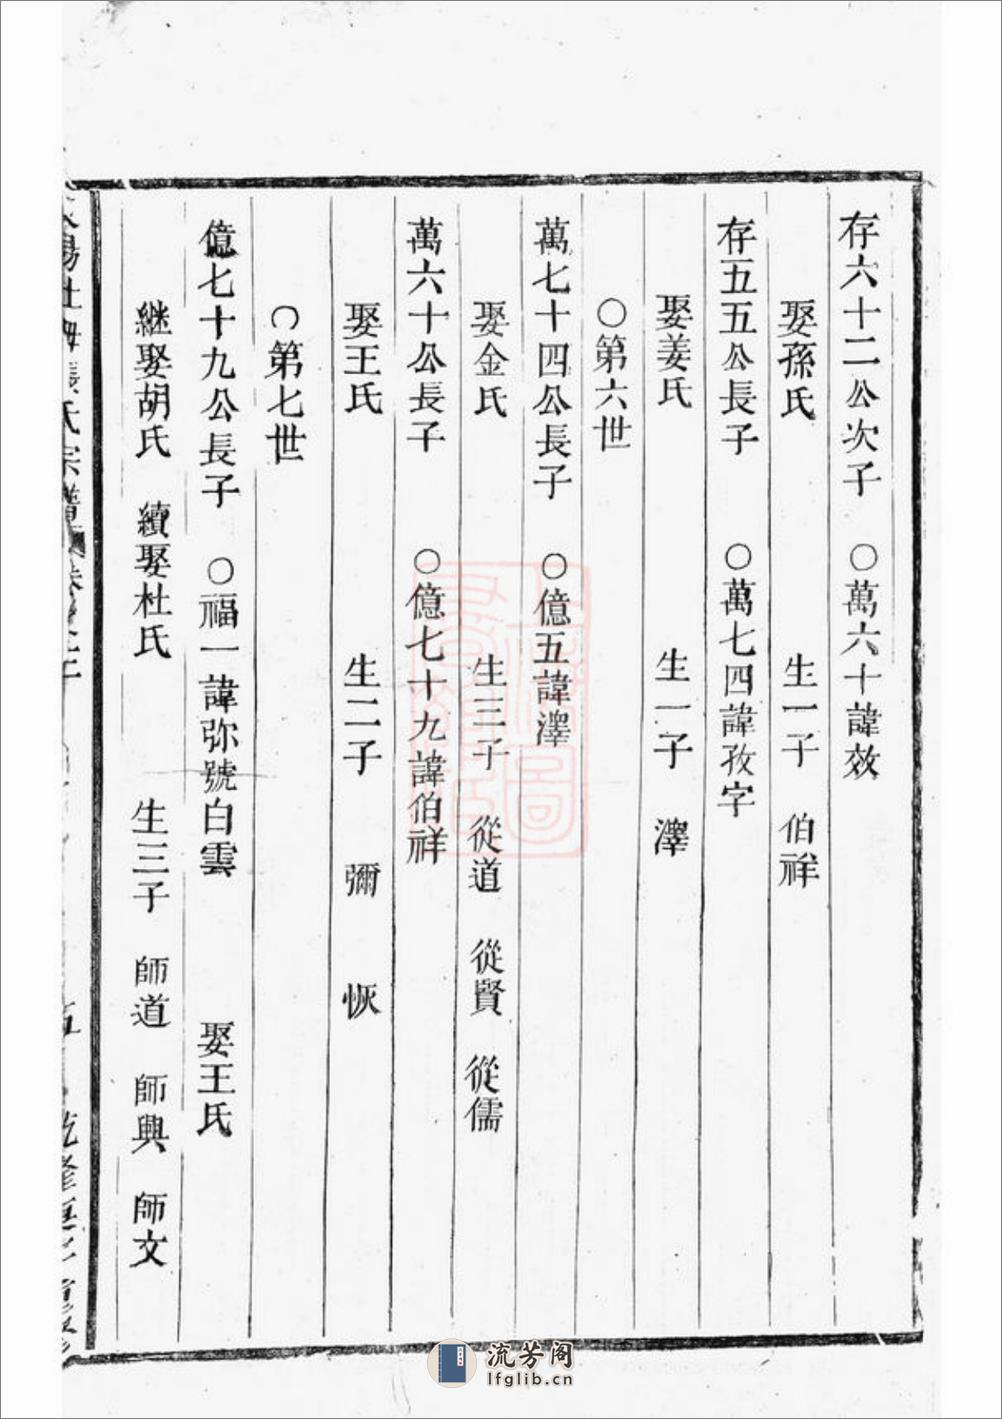 存六十二公次子　○萬六十諱效
娶孫氏　生一子　伯祥
存五五公長子　○萬七四諱孜字
娶姜氏　生一子　澤
○第六世
萬七十四公長子　○億五諱澤
娶金氏　生三子　從道　從賢　從儒
萬六十公長子　○億七十九諱伯祥
娶王氏　生二子　彌　恢
○第七世
億七十九公長子　○福一諱弥號白雲　娶王氏
継娶胡氏　續娶杜氏　生三子　師道　師興　師文
氏宗譜
流芳阁
lfglib.cn